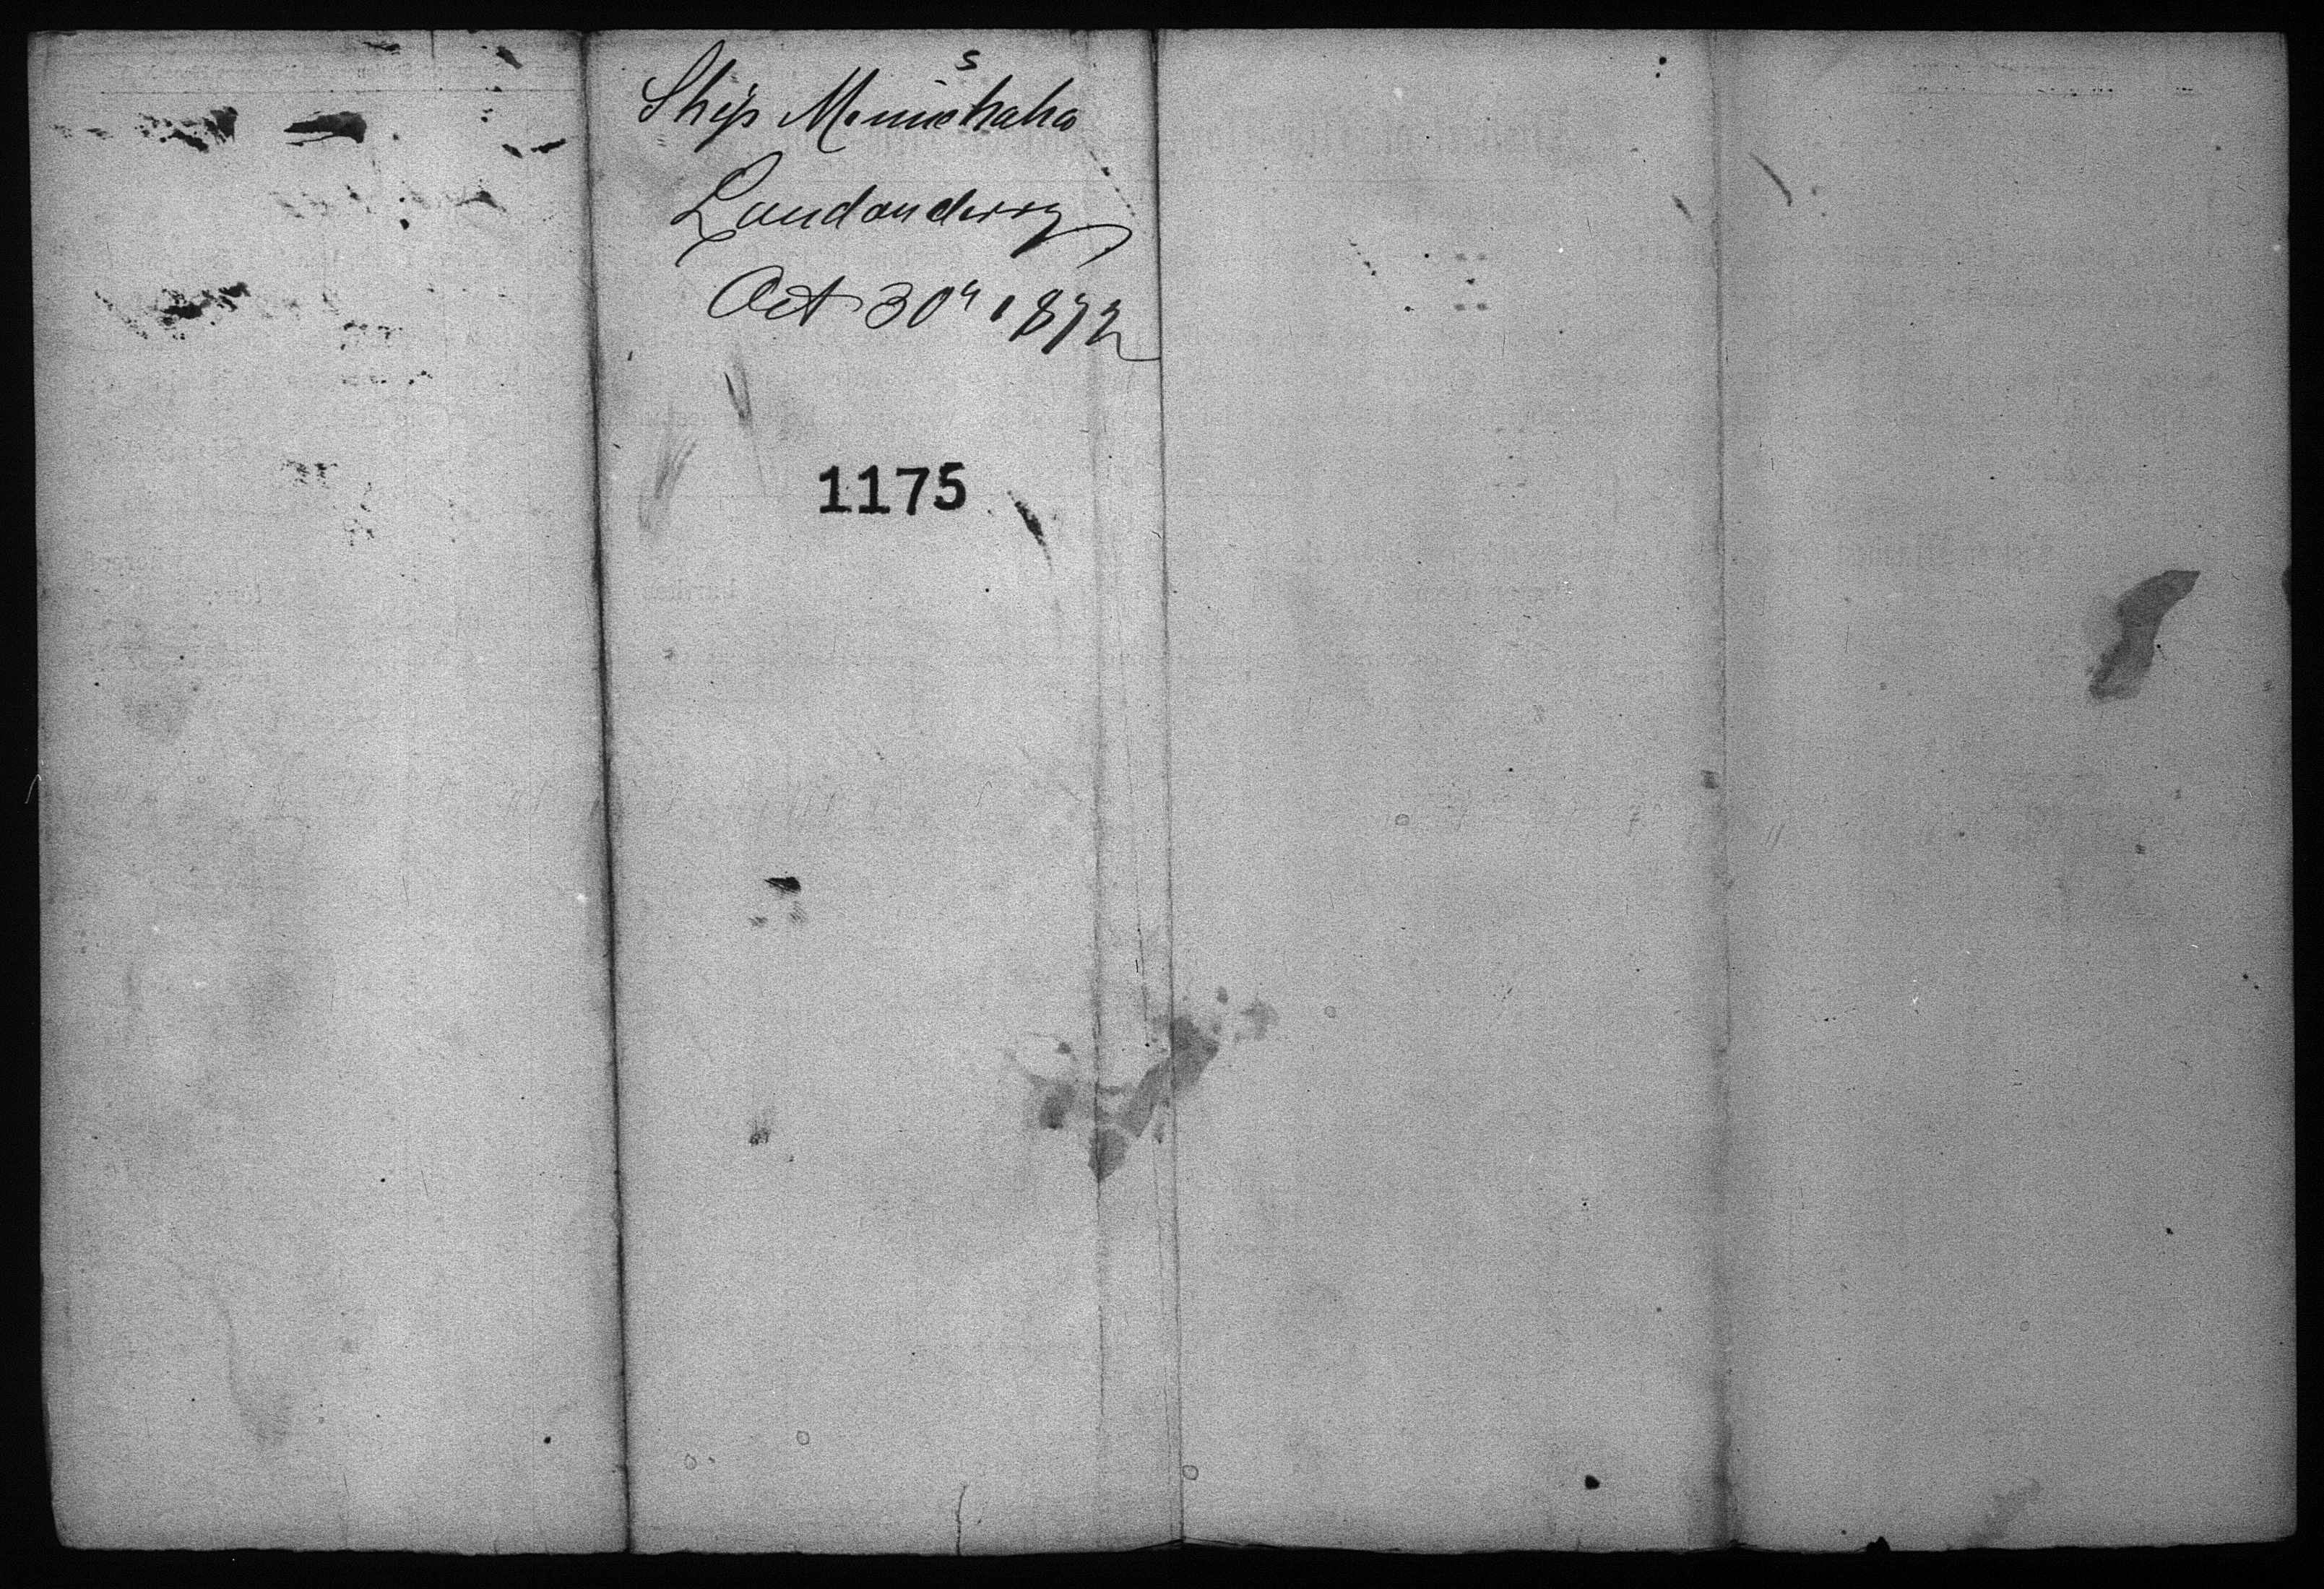 s
Ship Minnehaha
Londonderry
Oct 30" 1872
1175